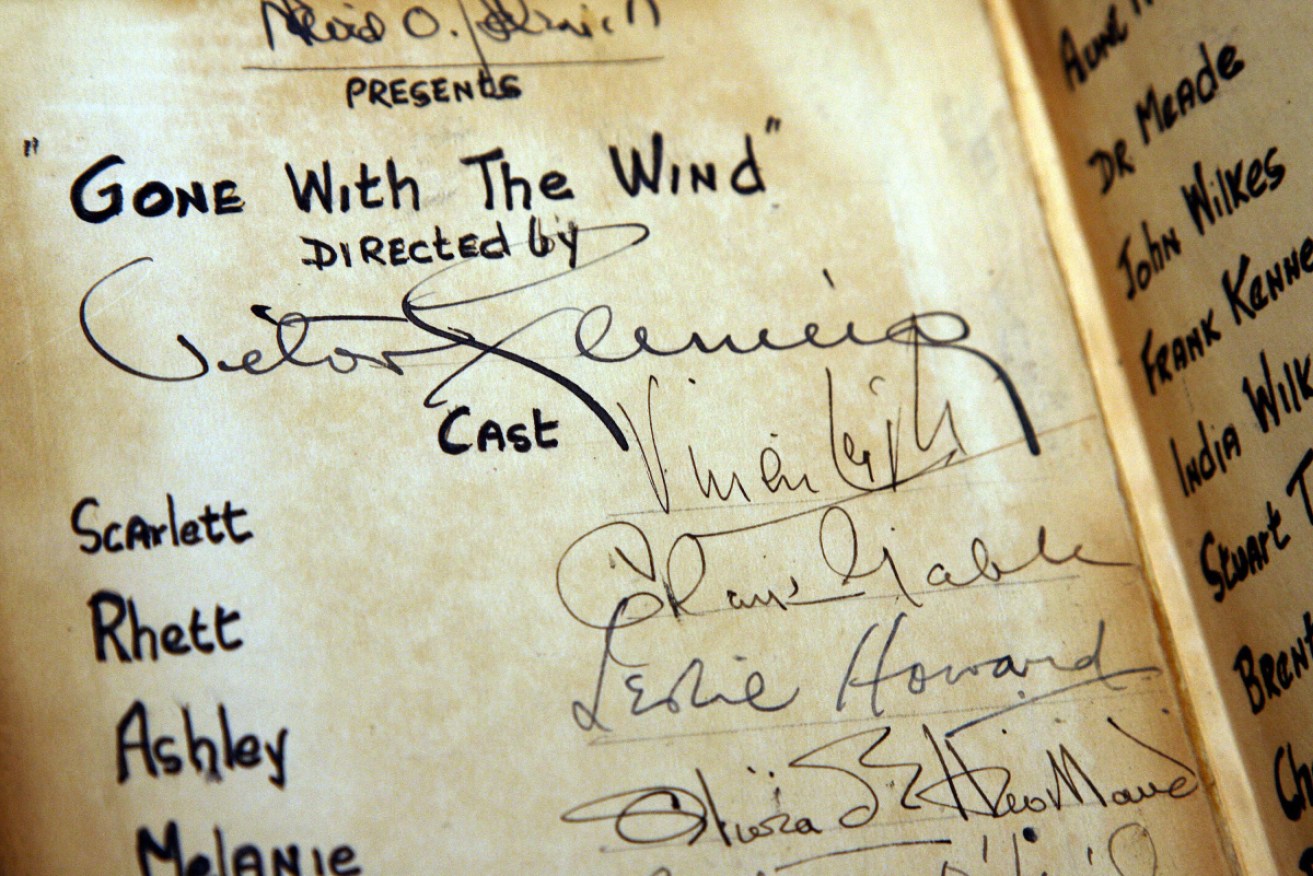 David O. Selznick
PRESENTS
"GONE With The WIND"
DIRECtED by
Victor Fleming
CAST
Vivien Leigh
Scarlett
Clark Gable
Rhett
Leslie Howard
Ashley
Olivia de Havilland
MelANIE
Aunt
DR MEADE
John Wilkes
FRANK KENNE
INDIA WILK
Stuart T
BRENT
Ch